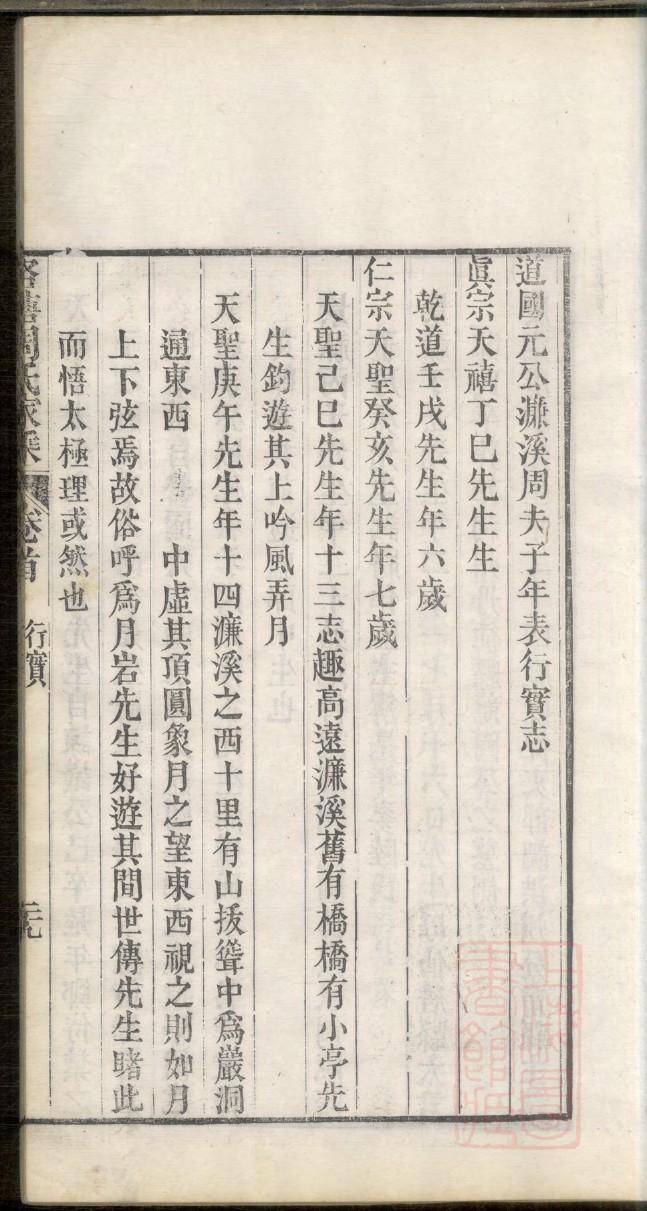 道國元公濂溪周夫子年表行實志
眞宗天禧丁巳先生生
乾道壬戌先生年六歲
仁宗天聖癸亥先生年七歲
天聖己巳先生年十三志趣高遠濂溪舊有橋橋有小亭先
生釣遊其上吟風弄月
天聖庚午先生年十四濂溪之西十里有山拔聳中爲巖洞
通東西 中虛其頂圓象月之望東西視之則如月
上下弦焉故俗呼爲月岩先生好遊其間世傳先生睹此
而悟太極理或然也
周氏家乘 卷首 行實